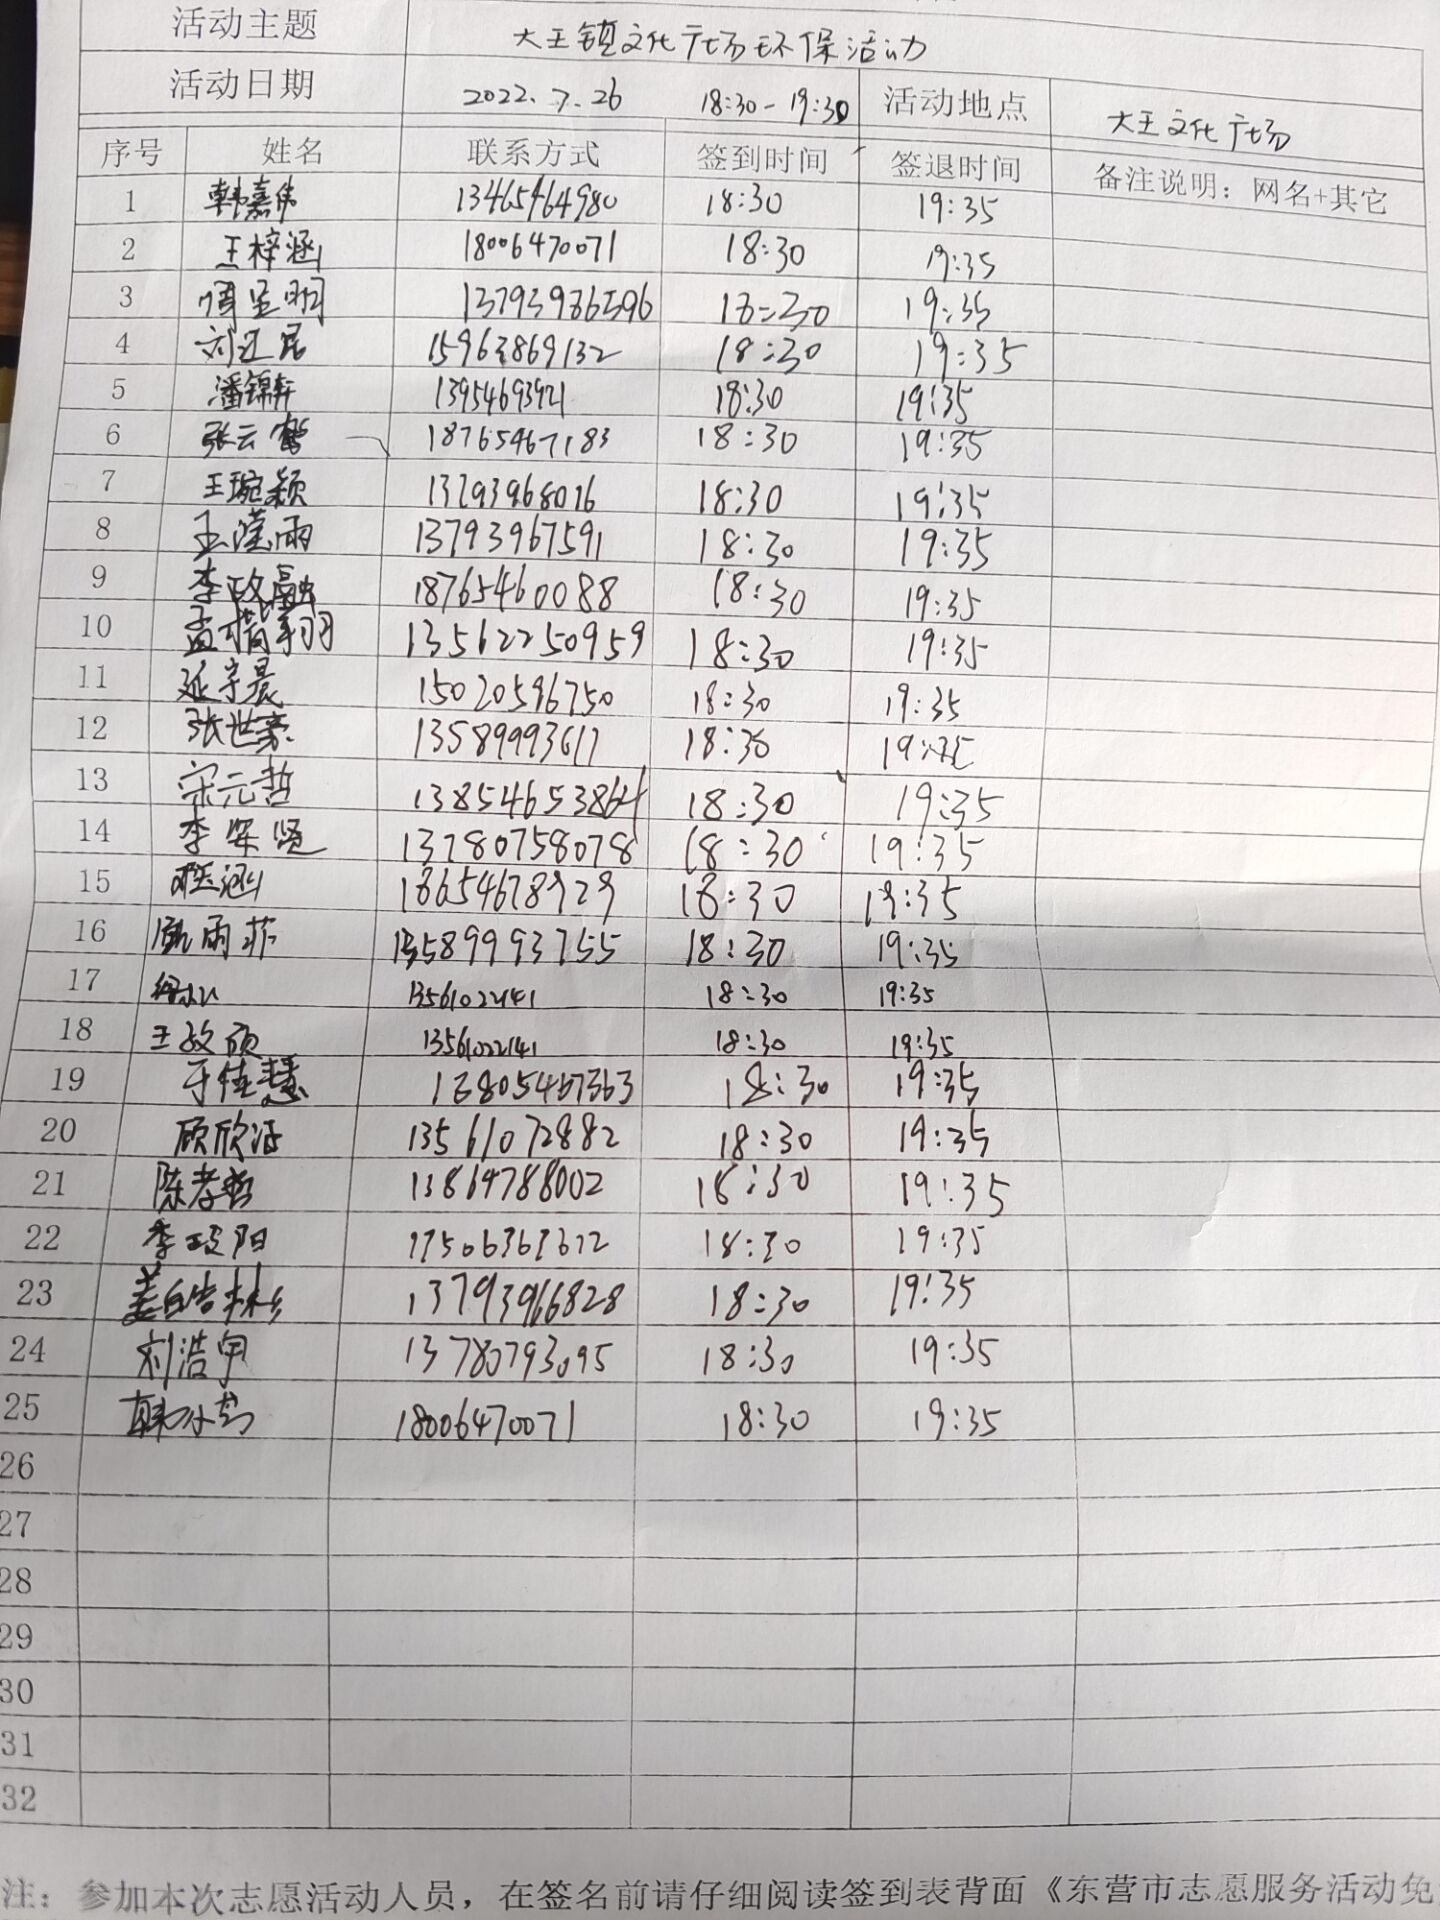 活动主题 大王镇文化广场环保活动
活动日期 2022.7.26 18:30-19:30 活动地点 大王文化广场
序号 姓名 联系方式 签到时间 签退时间 备注说明：网名+其它
1 韩嘉伟 13465464980 18:30 19:35
2 王梓涵 18006470071 18:30 19:35
3 13793986596 18:30 19:35
4 15963869132 18:30 19:35
5 潘锦轩 13954693921 18:30 19:35
6 张云鹤 18765467183 18:30 19:35
7 王琬颖 13793968016 18:30 19:35
8 王滢雨 13793967591 18:30 19:35
9 李政融 18765460088 18:30 19:35
10 孟楷翔 13562250959 18:30 19:35
11 延宇晨 15020596750 18:30 19:35
12 张世豪 13589993611 18:30 19:35
13 宋元哲 13854653864 18:30 19:35
14 李梁贤 13780758078 18:30 19:35
15 18654678929 18:30 19:35
16 雨菲 13589993755 18:30 19:35
17 13561022141 18:30 19:35
18 王敬硕 13561022141 18:30 19:35
19 于佳慧 13805467363 18:30 19:35
20 顾欣语 13561072882 18:30 19:35
21 陈孝哲 13864788002 18:30 19:35
22 李政阳 18:30 19:35
23 姜皓林 13793966828 18:30 19:35
24 刘浩宇 13780793095 18:30 19:35
25 18006470071 18:30 19:35
26
27
28
29
30
31
32
注：参加本次志愿活动人员，在签名前请仔细阅读签到表背面《东营市志愿服务活动免